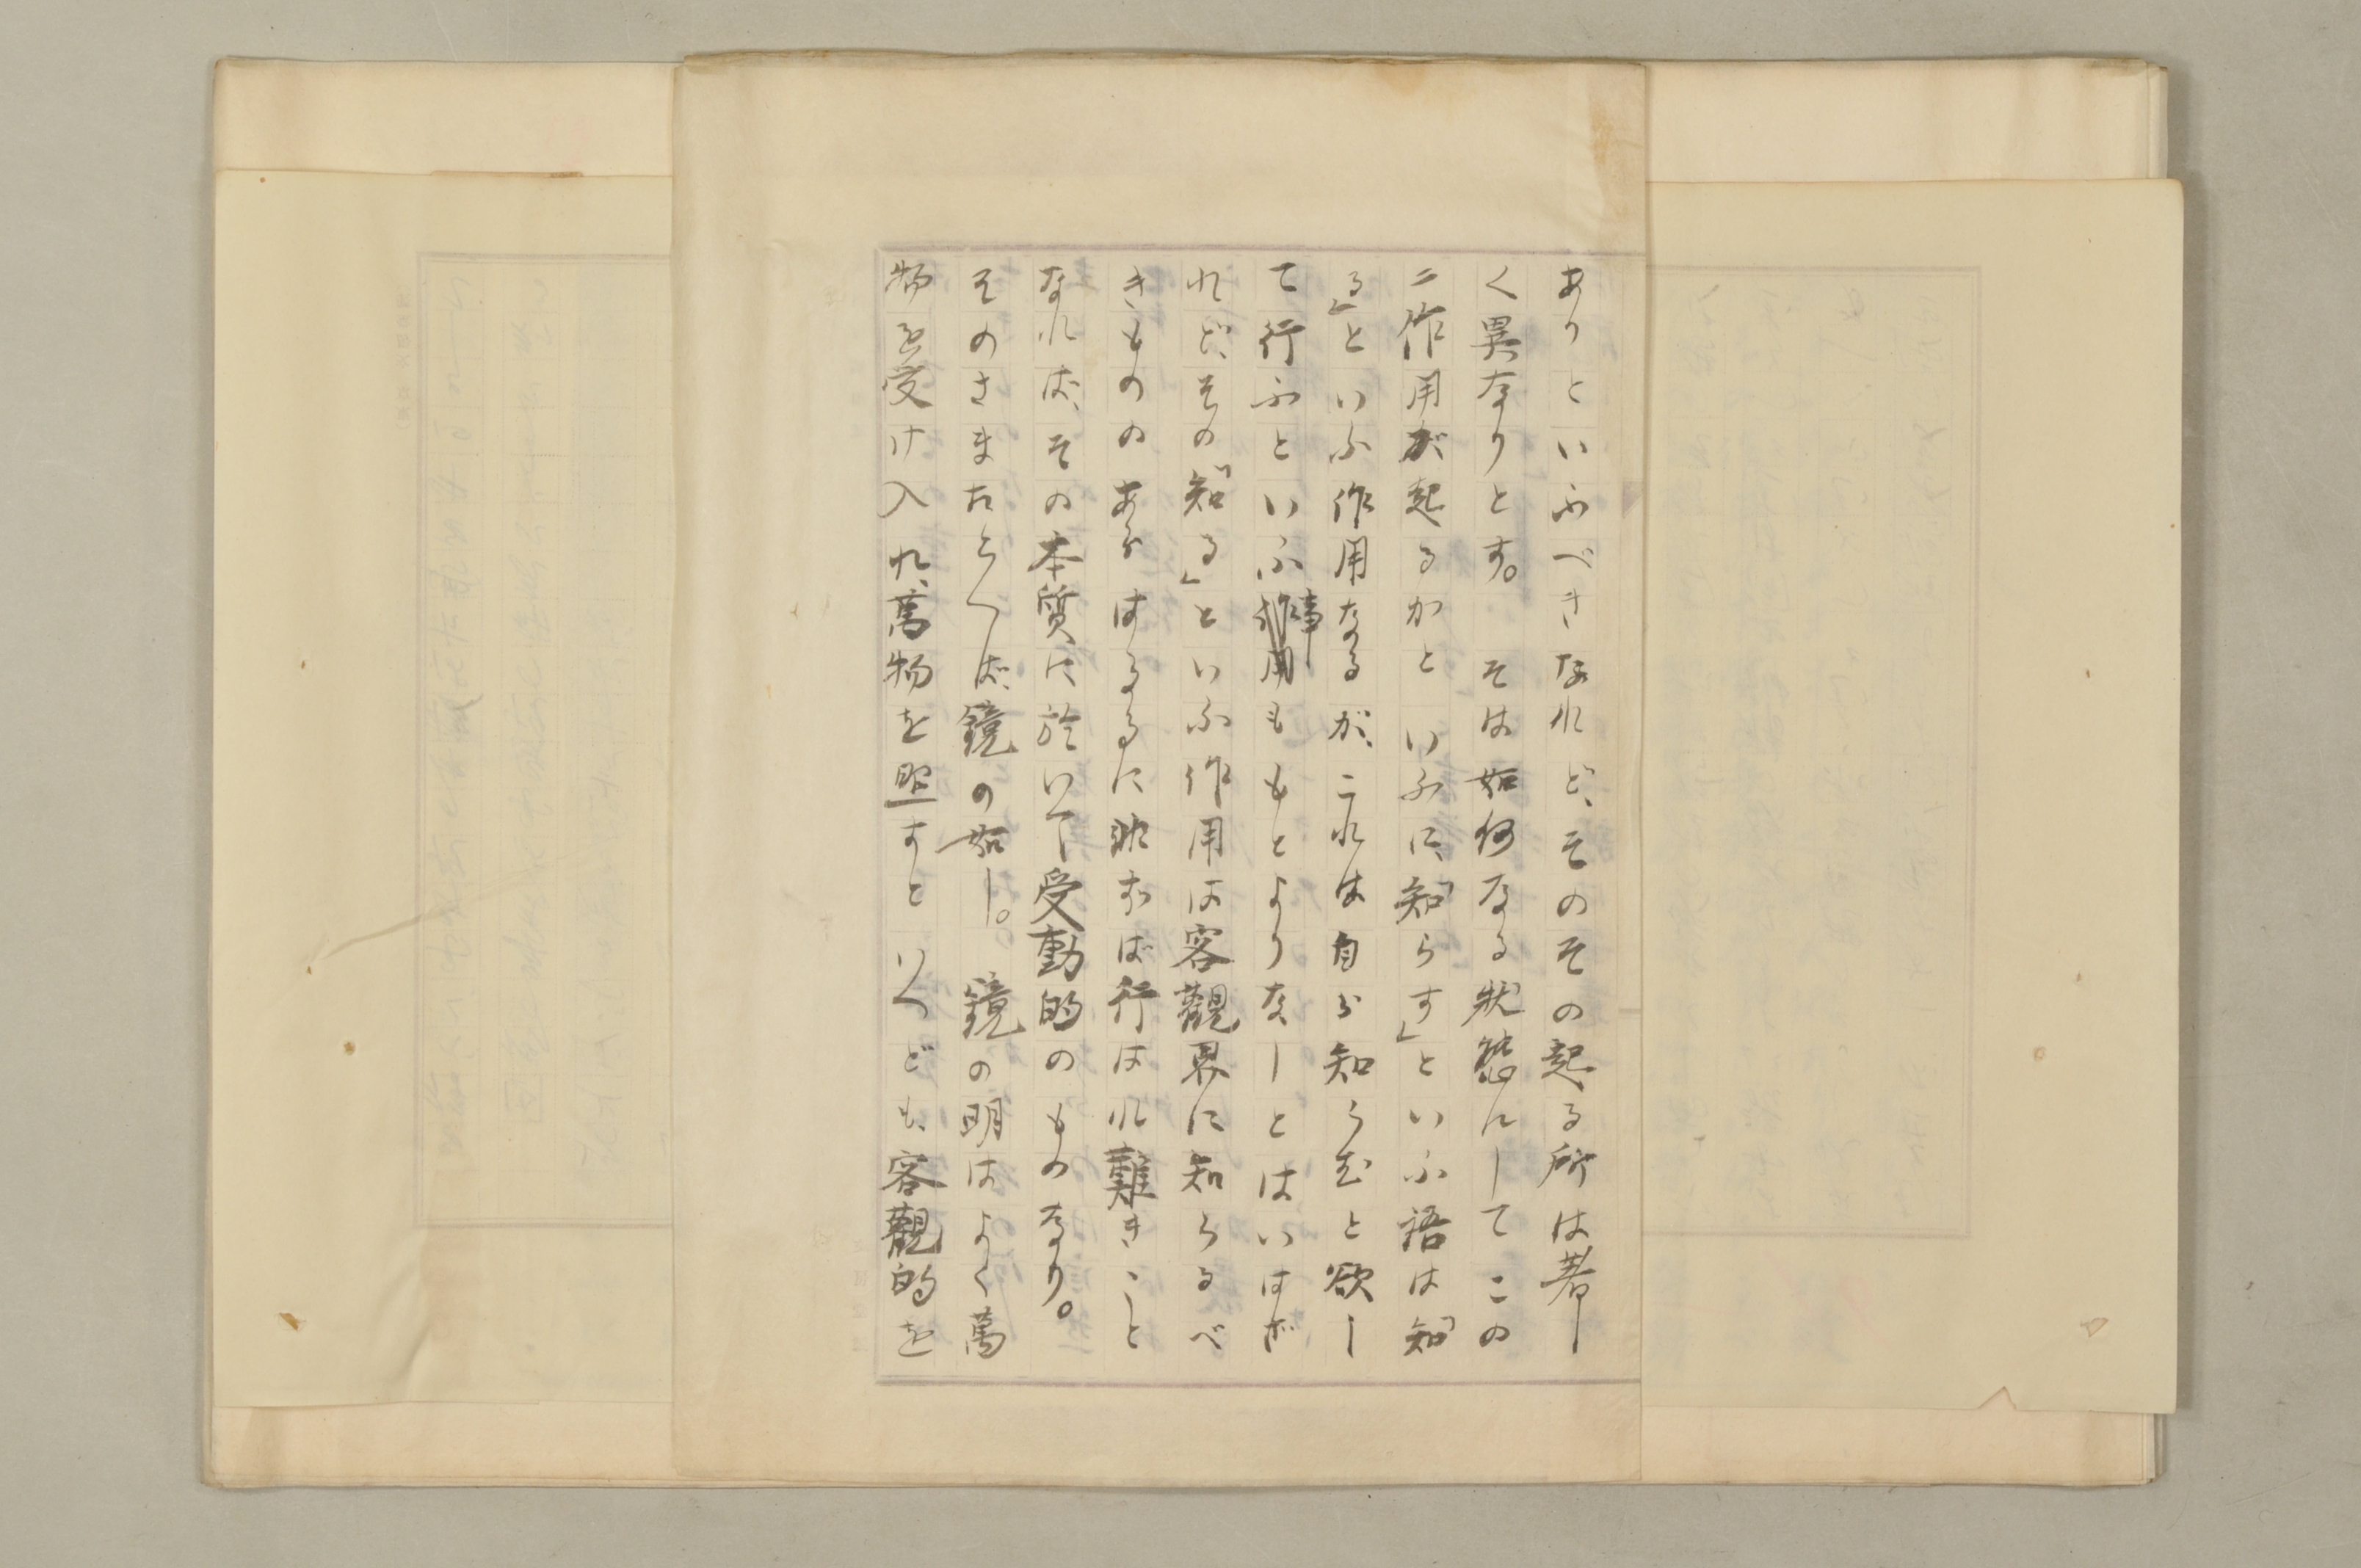 ありといふべきなれど、そのその起る所は著し
く異なりとす。そは如何なる狀態にしてこの
二作用が起るかといふに、「知らす」といふ語は「知
る」といふ作用なるが、これは自ら知らむと欲し
て行ふといふ事ももとよりなしとはいはざ
れど、その「知る」といふ作用は客觀界に知らるべ
きもののあらはるるに非ずば行はれ難きこと
なれば、その本質に於いて受動的のものなり。
そのさまたとへば、鏡の如し。鏡の明はよく萬
物を受け入れ、萬物を照すといへども、客觀的を